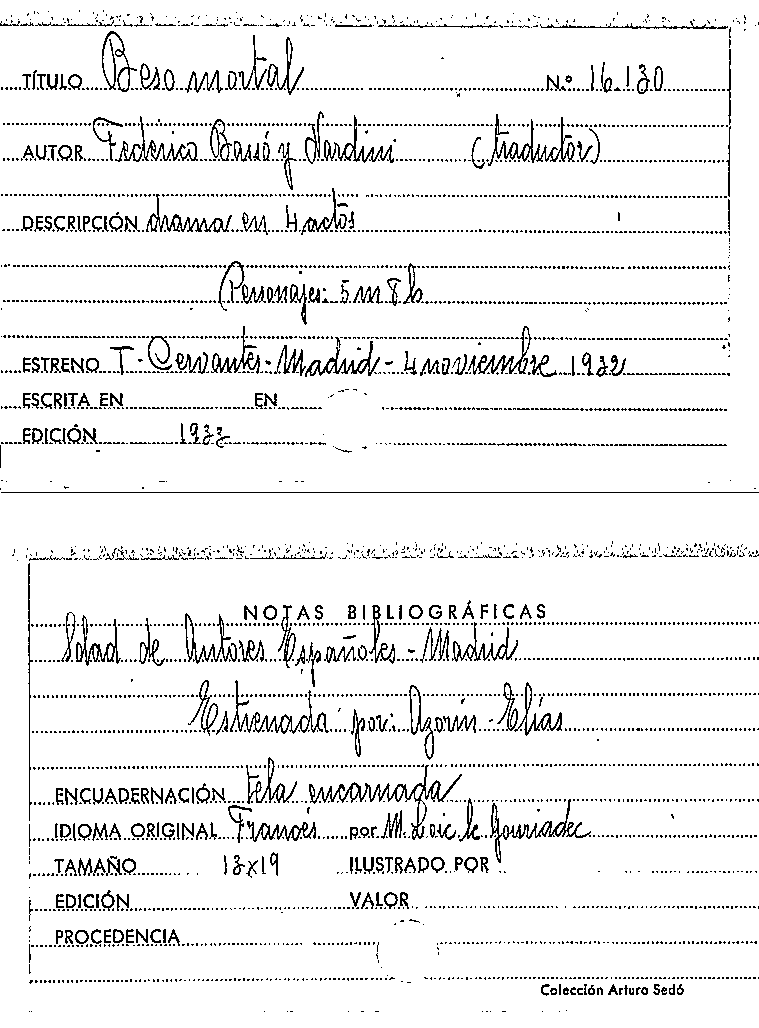 TÍTULO Beso mortal N.º 16.130
AUTOR Federico Bassó y Nardini (traductor)
DESCRIPCIÓN drama en 4 actos
Personajes: 5 m 8 h
ESTRENO T. Cervantes - Madrid - 4 noviembre 1932
ESCRITA EN EN
EDICIÓN 1933
NOTAS BIBLIOGRÁFICAS
Sdad de Autores Españoles - Madrid
Estrenada por: Azorín - Elías
ENCUADERNACIÓN tela encarnada
IDIOMA ORIGINAL Francés por M. Loic le Gouriadec
TAMAÑO 13x19 ILUSTRADO POR
EDICIÓN VALOR
PROCEDENCIA
Colección Arturo Sedó